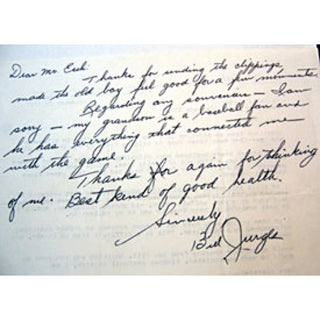 Dear Mr. Esch:
Thanks for sending the clippings,
made the old boy feel good for a few moments.
Regarding any souvenirs — I am
sorry — my grandson is a baseball fan and
he has everything that connected me
with the game.
Thanks for again for thinking
of me. Best kend of good health.
Sincerely
Bill Jurges